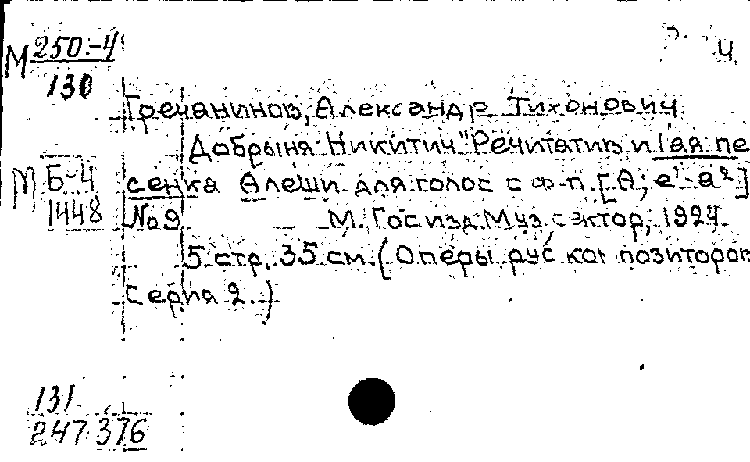 М 250-4
130
4
Гречанинов, Александр Тихонович
"Добрыня Никитич" Речитатив и 1ая пе
М Б-4
1448
сенка Алеши для голос с ф-п. [A; e¹-a²]
No 9 М. Госизд. Муз. сектор, 1924
5 стр. 35 см. (Оперы рус композиторов
серия 2.)
131
247376